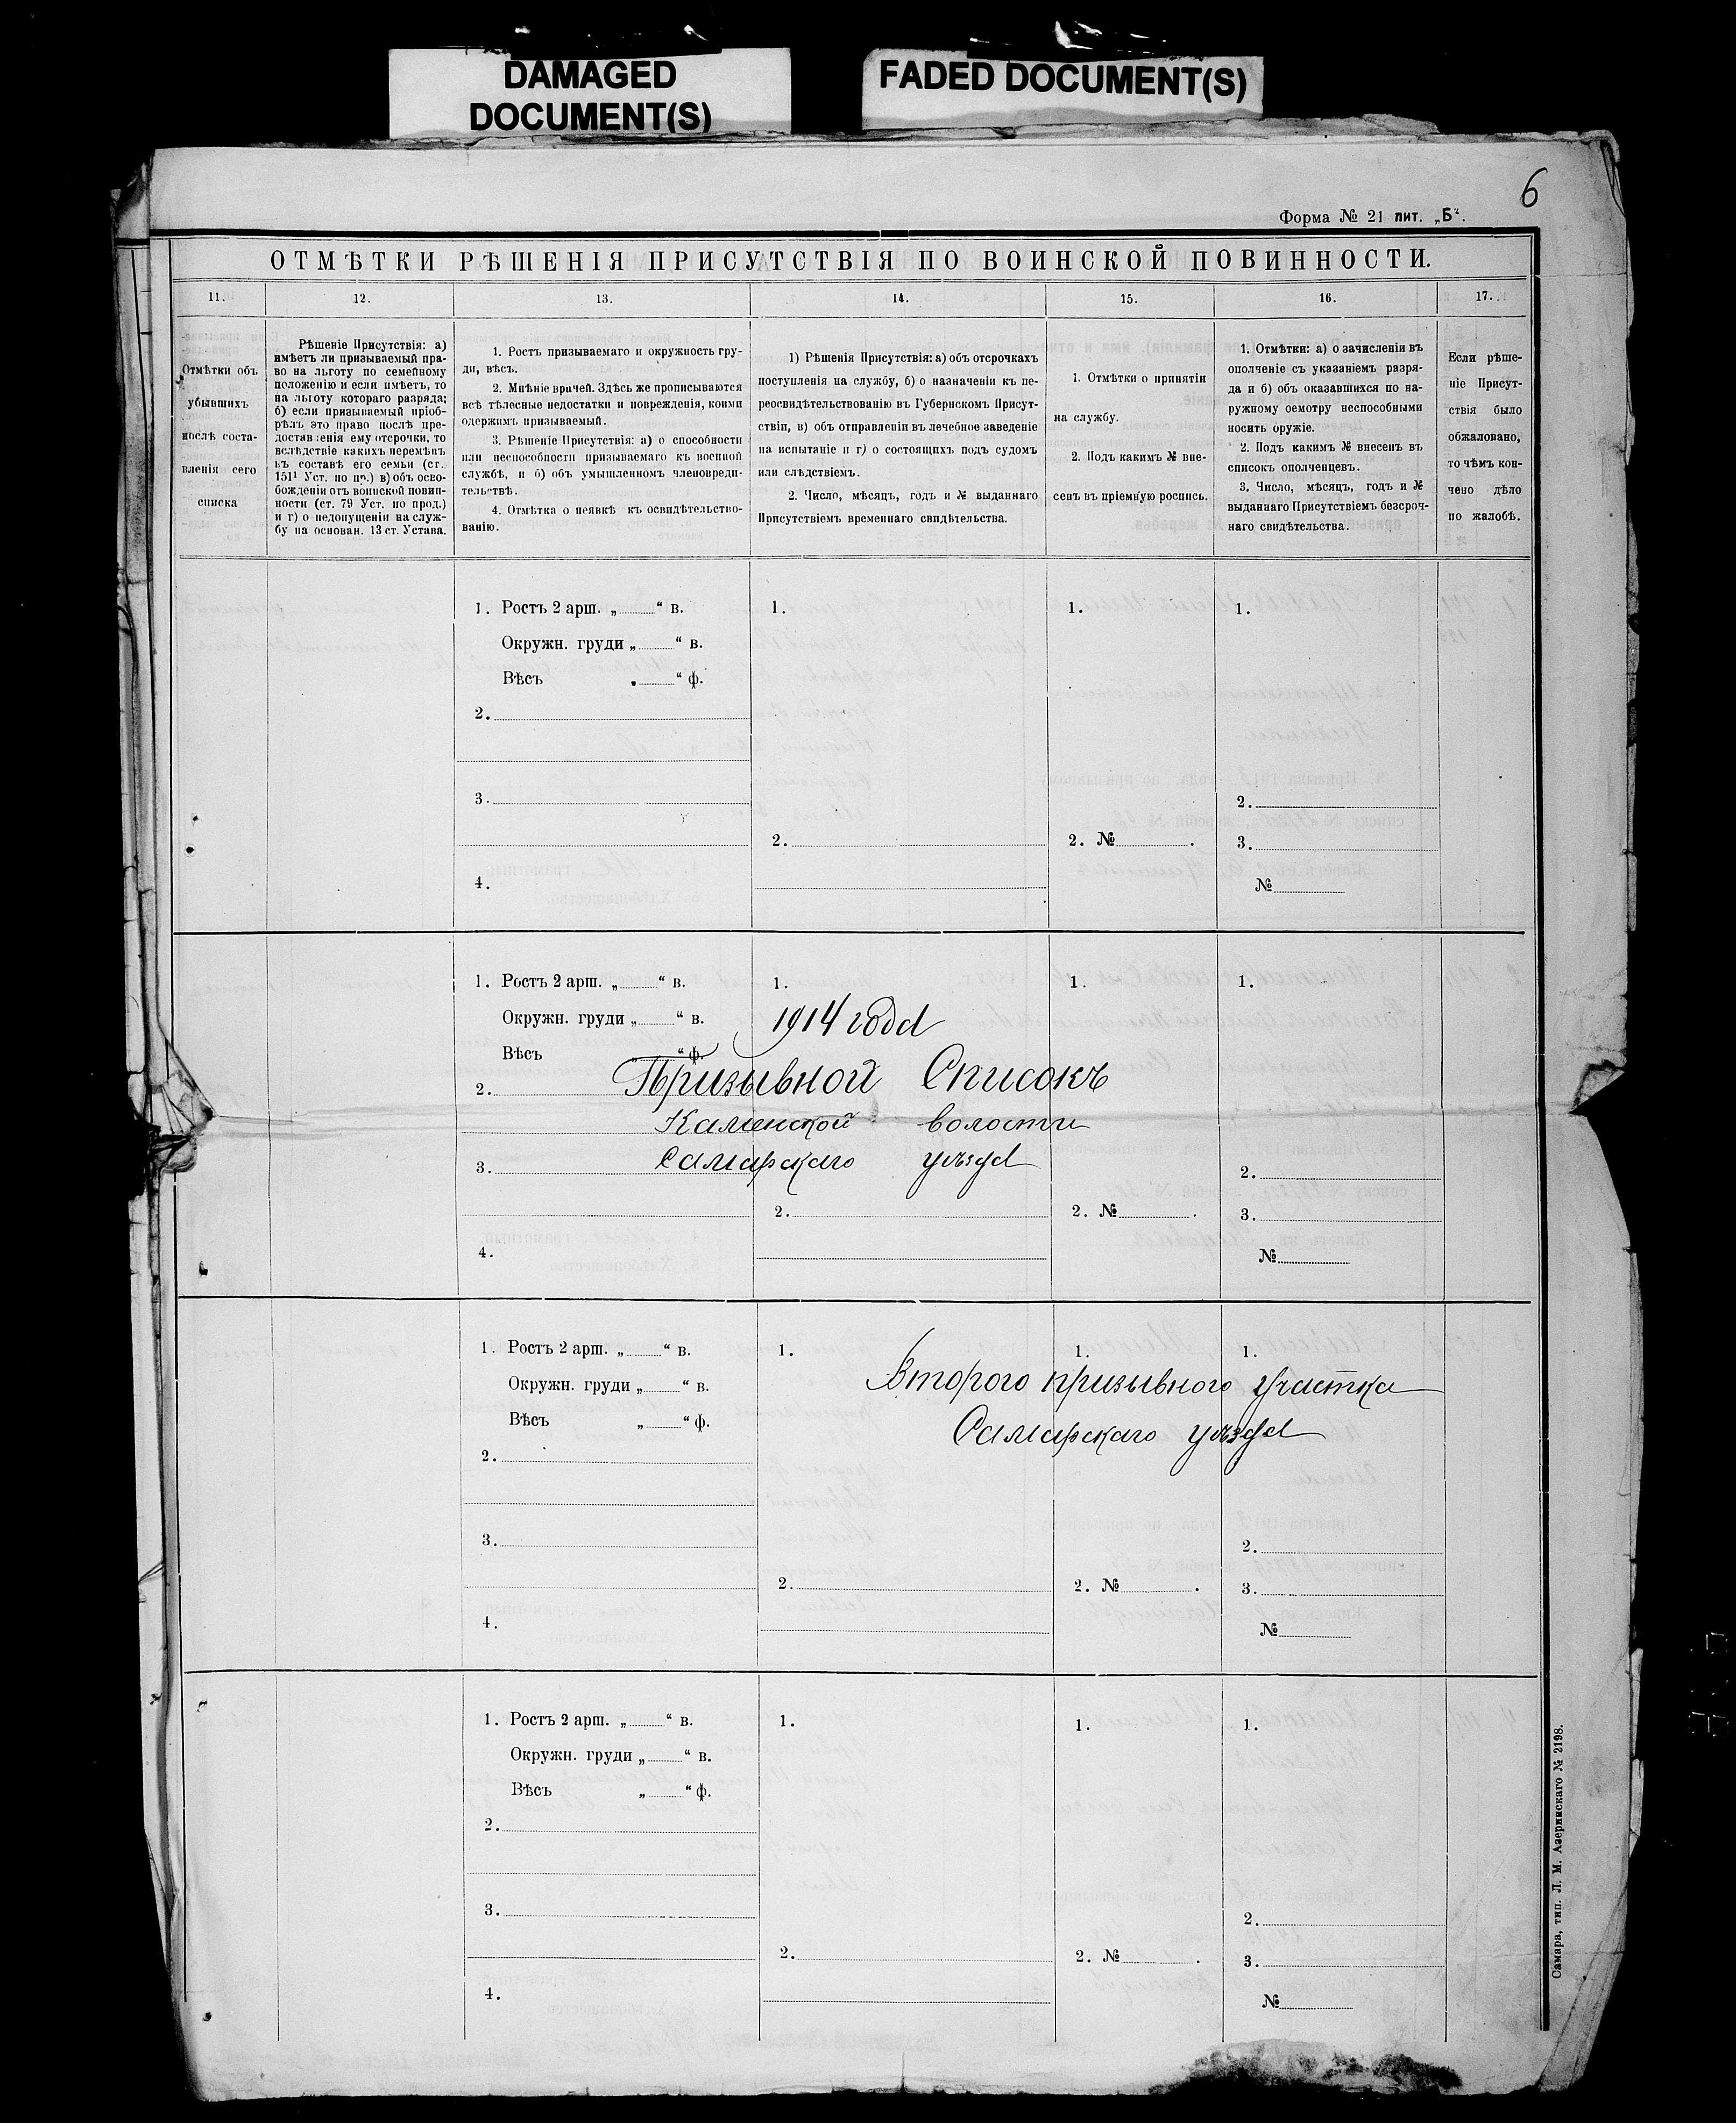 DAMAGED
DOCUMENT(S)
FADED DOCUMENT(S)
6
Форма № 21 лит. „Б“.
ОТМѢТКИ РѢШЕНІЯ ПРИСУТСТВІЯ ПО ВОИНСКОЙ ПОВИННОСТИ.
11.
12.
13.
14.
15.
16.
17.
Отмѣтки объ
убывшихъ
послѣ соста-
вленія сего
списка
Рѣшеніе Присутствія: а)
имѣетъ ли призываемый пра-
во на льготу по семейному
положенію и если имѣетъ, то
на льготу котораго разряда;
б) если призываемый пріоб-
рѣлъ это право послѣ пре-
доставленія ему отсрочки, то
вслѣдствіе какихъ перемѣнъ
въ составѣ его семьи (ст.
151¹ Уст. по пр.) в) объ осво-
божденіи отъ воинской повин-
ности (ст. 79 Уст. по прод.)
и г) о недопущеніи на служ-
бу на основан. 13 ст. Устава.
1. Ростъ призываемаго и окружность гру-
ди, вѣсъ.
2. Мнѣніе врачей. Здѣсь же прописываются
всѣ тѣлесные недостатки и поврежденія, коими
одержимъ призываемый.
3. Рѣшеніе Присутствія: а) о способности
или неспособности призываемаго къ военной
службѣ, и б) объ умышленномъ членовреди-
тельствѣ.
4. Отмѣтка о неявкѣ къ освидѣтельство-
ванію.
1) Рѣшенія Присутствія: а) объ отсрочкахъ
поступленія на службу, б) о назначеніи къ пе-
реосвидѣтельствованію въ Губернскомъ Присут-
ствіи, в) объ отправленіи въ лечебное заведеніе
на испытаніе и г) о состоящихъ подъ судомъ
или слѣдствіемъ.
2. Число, мѣсяцъ, годъ и № выданнаго
Присутствіемъ временнаго свидѣтельства.
1. Отмѣтки о принятіи
на службу.
2. Подъ какимъ № вне-
сенъ въ пріемную роспись.
1. Отмѣтки: а) о зачисленіи въ
ополченіе съ указаніемъ разря-
да и б) объ оказавшихся по на-
ружному осмотру неспособными
носить оружіе.
2. Подъ какимъ № внесенъ въ
списокъ ополченцевъ.
3. Число, мѣсяцъ, годъ и №
выданнаго Присутствіемъ безсроч-
наго свидѣтельства.
Если рѣше-
ніе Присут-
ствія было
обжаловано,
то чѣмъ кон-
чено дѣло
по жалобѣ.
1. Ростъ 2 арш. „ “ в.
Окружн. груди „ “ в.
Вѣсъ „ “ ф.
2.
3.
4.
1.
2.
1.
2. №
1.
2.
3.
№
1. Ростъ 2 арш. „ “ в.
Окружн. груди „ “ в.
Вѣсъ „ “ ф.
2.
3.
4.
1.
2.
1.
2. №
1.
2.
3.
№
1914 года
Призывной Списокъ
Каменской волости
Самарскаго уѣзда
1. Ростъ 2 арш. „ “ в.
Окружн. груди „ “ в.
Вѣсъ „ “ ф.
2.
3.
4.
1.
2.
1.
2. №
1.
2.
3.
№
Второго призывного участка
Самарскаго уѣзда
1. Ростъ 2 арш. „ “ в.
Окружн. груди „ “ в.
Вѣсъ „ “ ф.
2.
3.
4.
1.
2.
1.
2. №
1.
2.
3.
№
Самара, тип. Л. М. Азеринскаго № 2198.